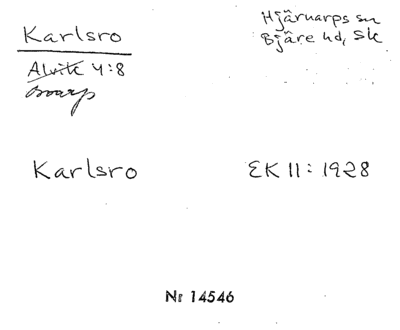 Karlsro
Hjärnarps sn
Bjäre hd, Sk
Alvik 4:8
Boarp
Karlsro
EK 11: 1928
Nr 14546